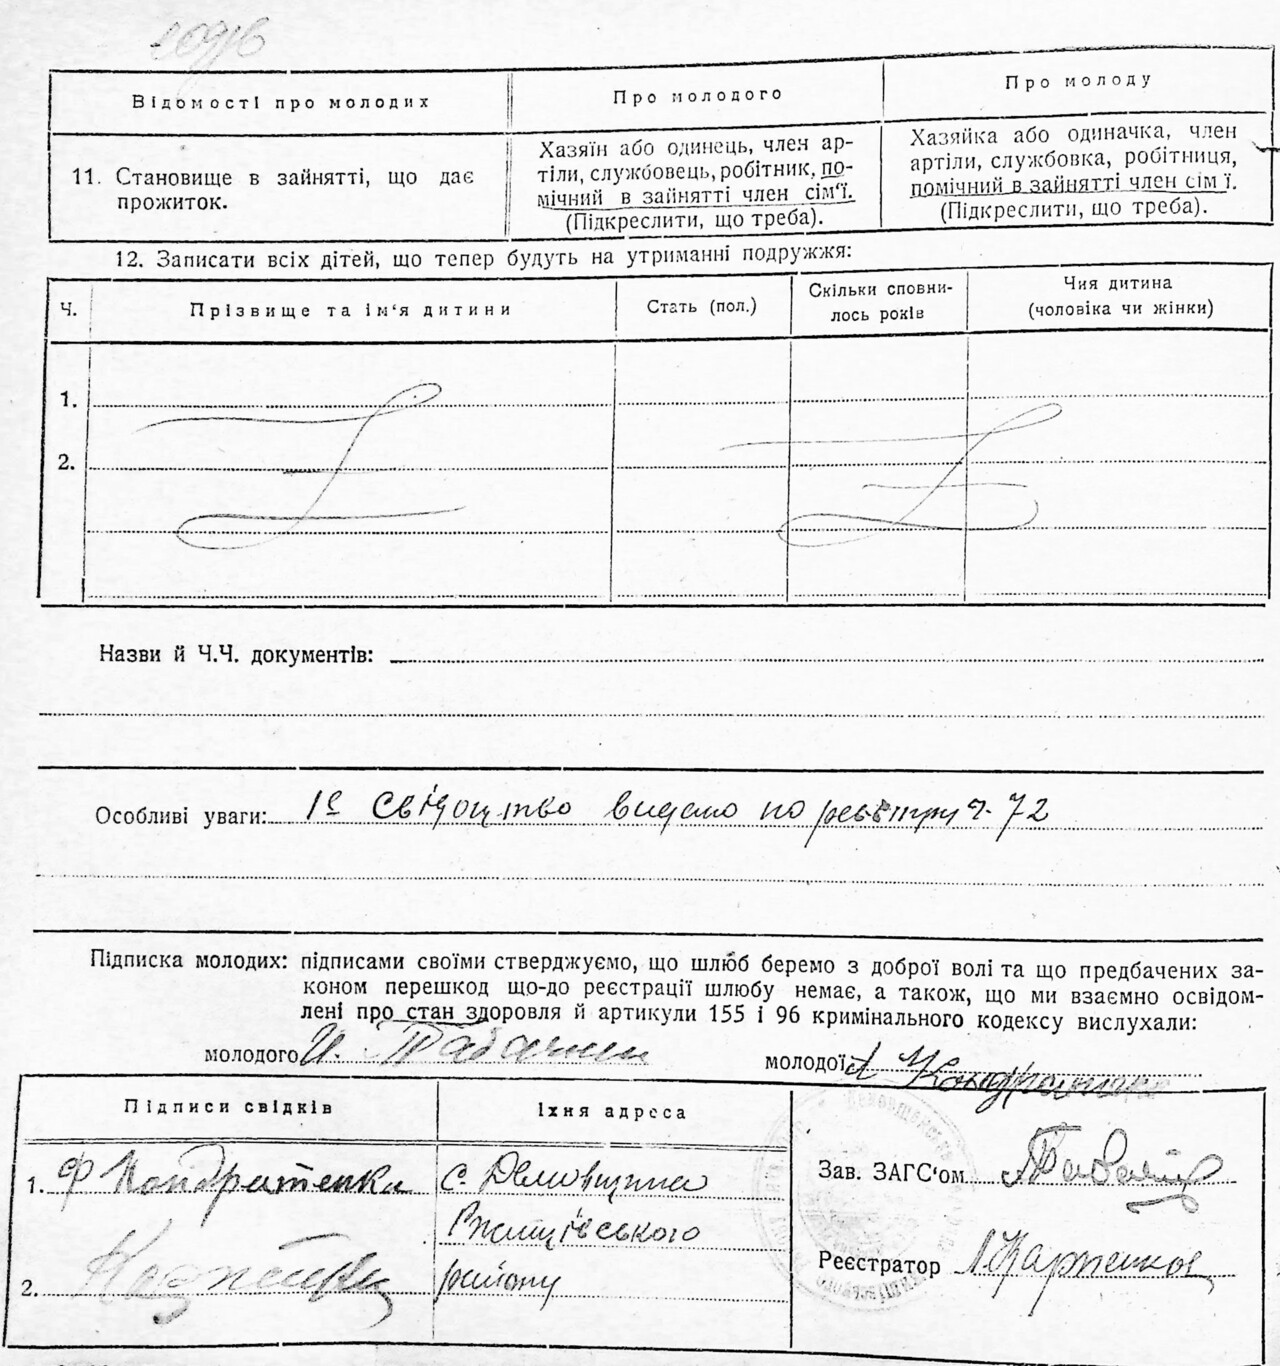 Відомості про молодих
Про молодого
Про молоду
11. Становище в зайнятті, що дає
прожиток.
Хазяїн або одинець, член ар-
тіли, службовець, робітник, по-
мічний в зайнятті член сім'ї.
(Підкреслити, що треба).
Хазяйка або одиначка, член
артіли, службовка, робітниця,
помічний в зайнятті член сім ї.
(Підкреслити, що треба).
12. Записати всіх дітей, що тепер будуть на утриманні подружжя:
Ч.
Прізвище та ім'я дитини
Стать (пол.)
Скільки сповни-
лось років
Чия дитина
(чоловіка чи жінки)
1.
2.
Назви й Ч.Ч. документів:
Особливі уваги: Свідоцтво видано по реєстру ч. 72
Підписка молодих: підписами своїми стверджуємо, що шлюб беремо з доброї волі та що предбачених за-
коном перешкод що-до реєстрації шлюбу немає, а також, що ми взаємно освідом-
лені про стан здоровля й артикули 155 і 96 кримінального кодексу вислухали:
молодого
молодої
Підписи свідків
Їхня адреса
1. Ф Кондратенко
с. Демовщина
Ржищівського
району
2.
Зав. ЗАГС'ом
Реєстратор